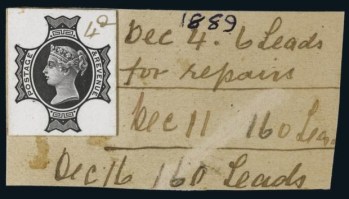 1889
4d
POSTAGE & REVENUE
Dec 4. 6 Leads
for repairs
Dec 11 160 Leads
Dec 16 160 Leads